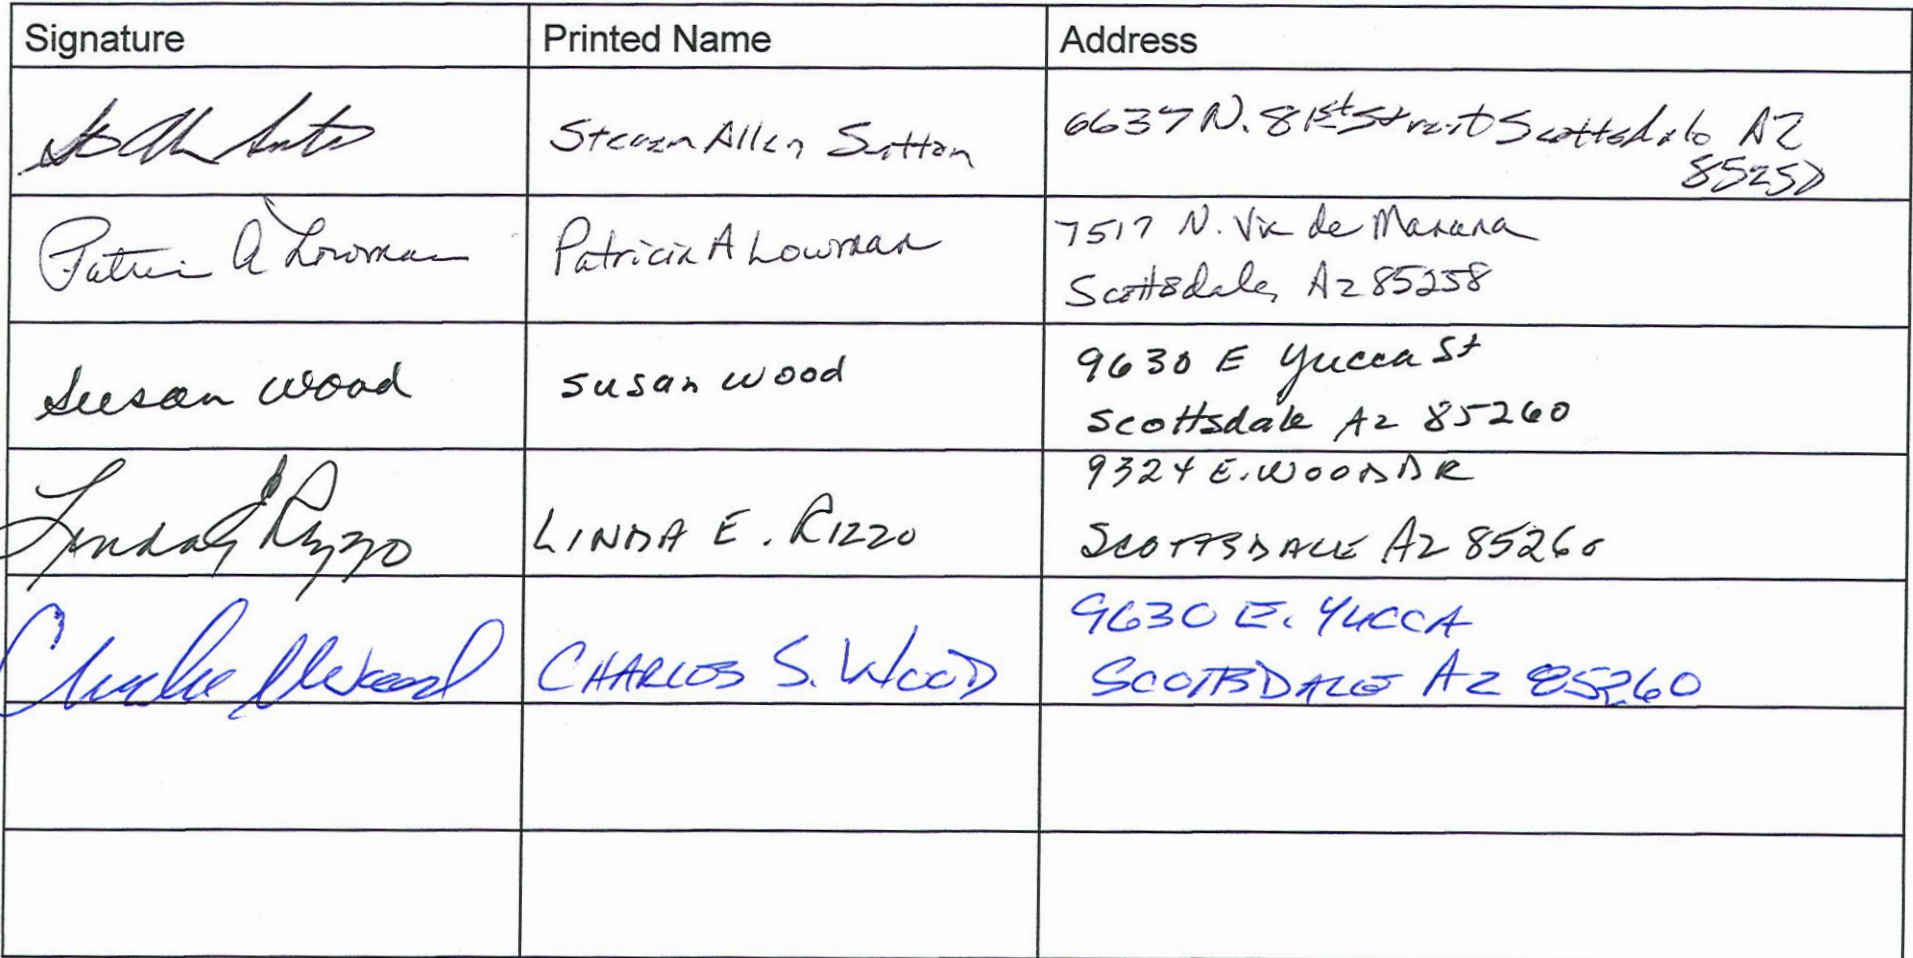 Signature Printed Name Address
Steven Allen Sutton 6637 N. 81st Street Scottsdale AZ
85250
Patricia A Lowman Patricia A Lowman 7517 N. Via de Manana
Scottsdale, Az 85258
Susan Wood Susan Wood 9630 E Yucca St
Scottsdale Az 85260
Linda E Rizzo LINDA E. RIZZO 9324 E. WOOD DR
SCOTTSDALE AZ 85260
CHARLES S. WOOD 9630 E. YUCCA
SCOTTSDALE AZ 85260